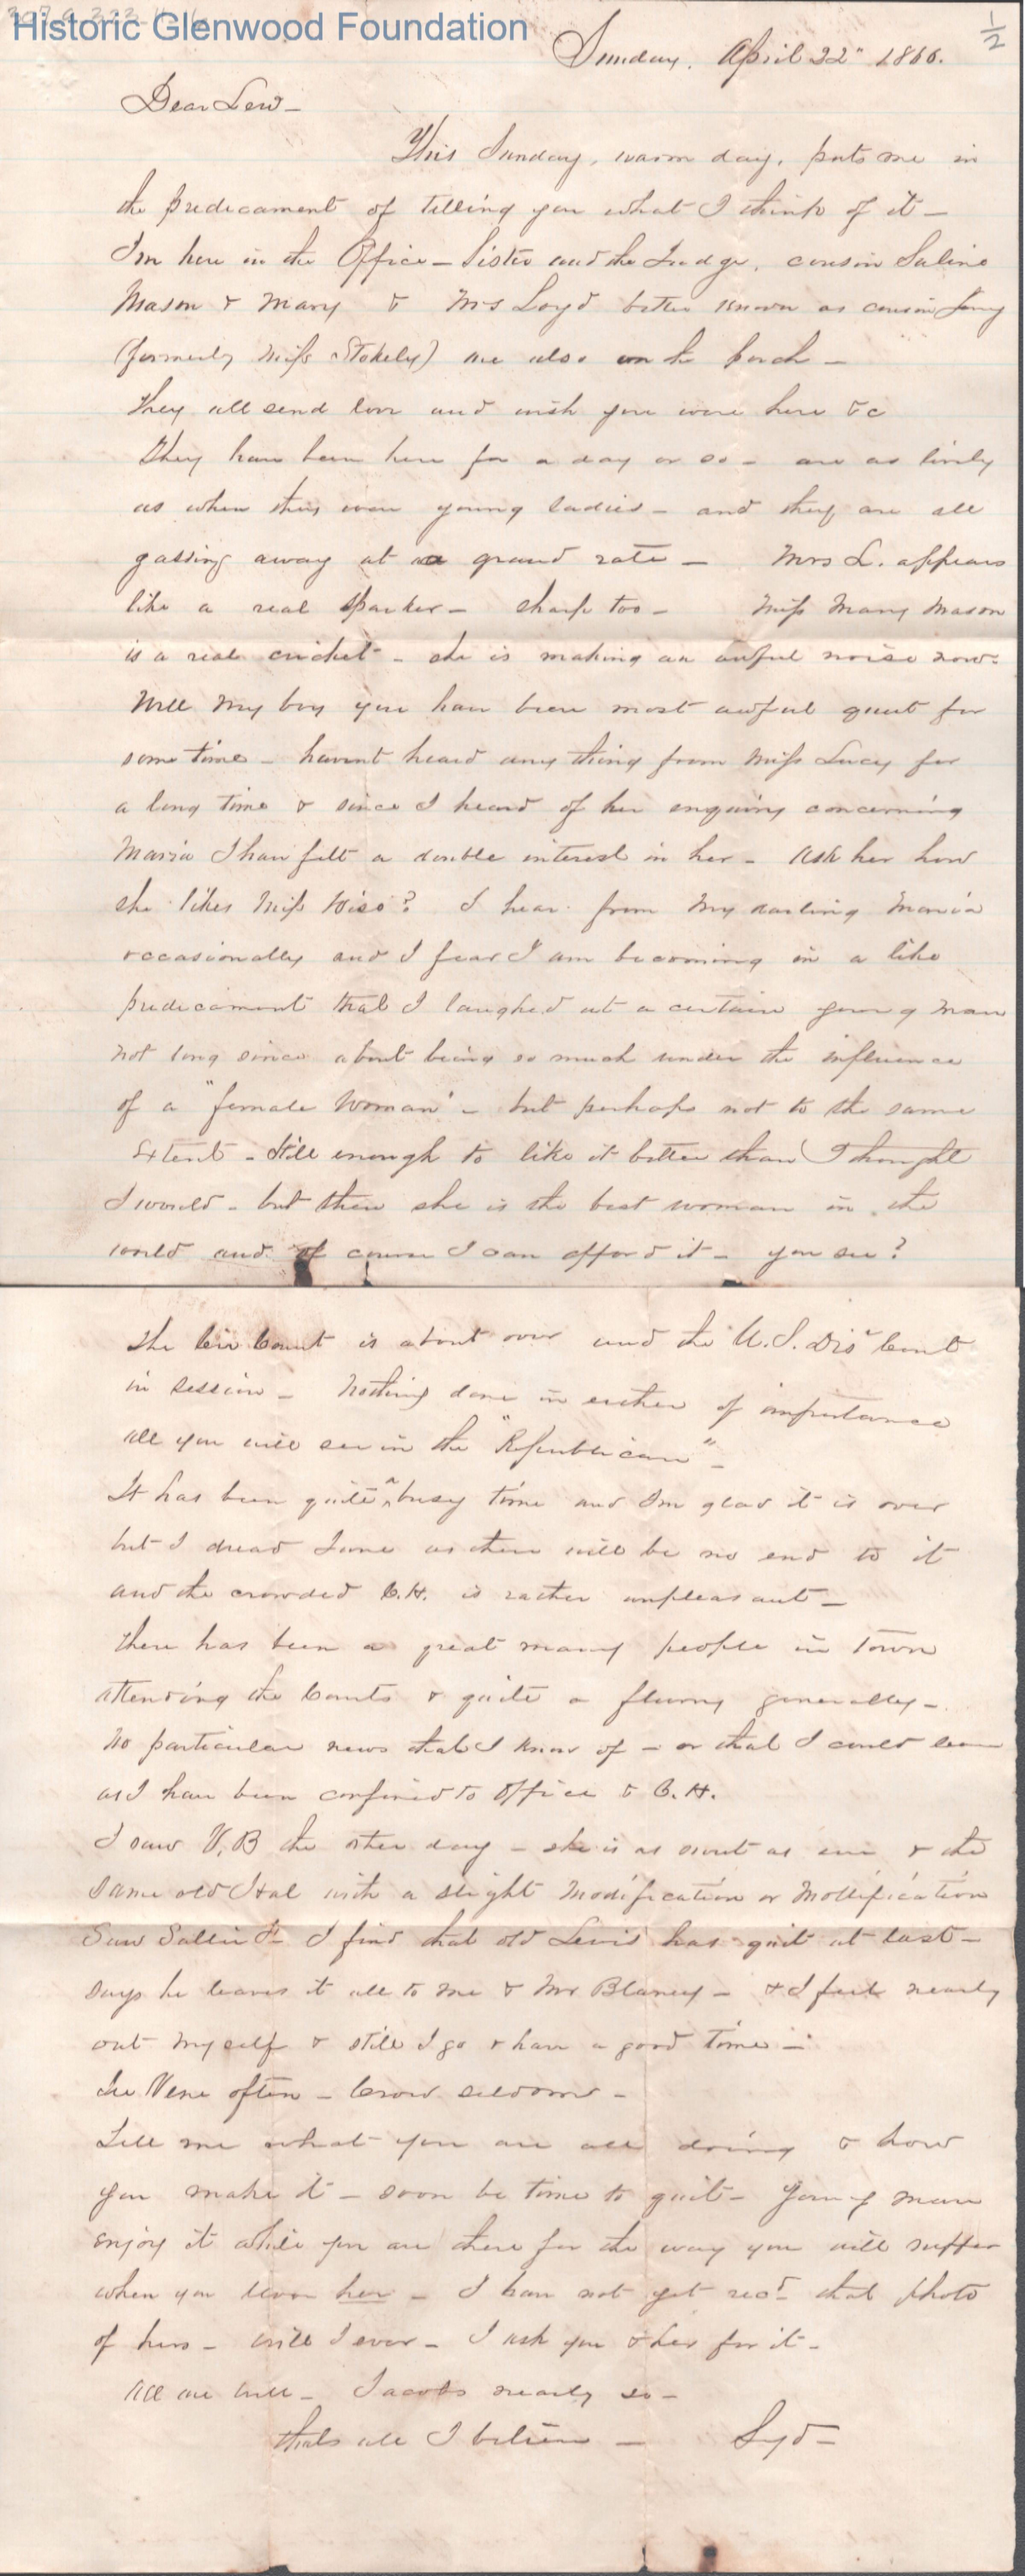 Historic Glenwood Foundation
1/2
Sunday, April 22" 1866.
Dear Lew-
This Sunday, warm day, puts me in
the predicament of telling you what I think of it-
I'm here in the Office- Sister and the Judge, cousin Saline
Mason & Mary & Mrs Loyd better known as cousin Jenny
(formerly Miss Stokely) are also on the porch-
they all send love and wish you were here &c
They have been here for a day or so- are as lively
as when they were young ladies- and they are all
gassing away at a grand rate- Mrs L. appears
like a real sparker- sharp too- Miss Mary Mason
is a real cricket- she is making an awful noise now-
Well my boy you have been most awful quiet for
some time- havent heard any thing from Miss Lucy for
a long time & since I heard of her enquiry concerning
Maria I have felt a double interest in her- Ask her how
she likes Miss Wise? I hear from my darling Maria
occasionally and I fear I am becoming in a like
predicament that I laughed at a certain young man
not long since about being so much under the influence
of a "female woman"- but perhaps not to the same
extent- Still enough to like it better than I thought
I would- but then she is the best woman in the
world and of course I can afford it- you see?
The Cir Court is about over and the U.S. Dis't Court
in session- Nothing done in either of importance
all you will see in the "Republican"-
It has been quite a busy time and Im glad it is over
but I dread June as there will be no end to it
and the crowded C.H. is rather unpleasant-
There has been a great many people in Town
attending the Courts & quite a flurry generally-
No particular news that I know of- or that I could learn
as I have been confined to Office & C.H.
I saw V.B the other day- she is as sweet as ever & the
same old Hal with a slight modification or mollification
Saw Sallie I find that old Lewis has quit at last-
says he leaves it all to me & Mr Blaney- & I feel nearly
out myself & still I go & have a good time-
See Vene often- Crow seldom-
Tell me what you are all doing & how
you make it- soon be time to quit- Young man
enjoy it while you are there for the way you will suffer
when you leave her- I have not yet rec'd that photo
of hers- will I ever- I ask you & her for it-
All are well- Jacobs nearly so-
thats all I believe- Syd-